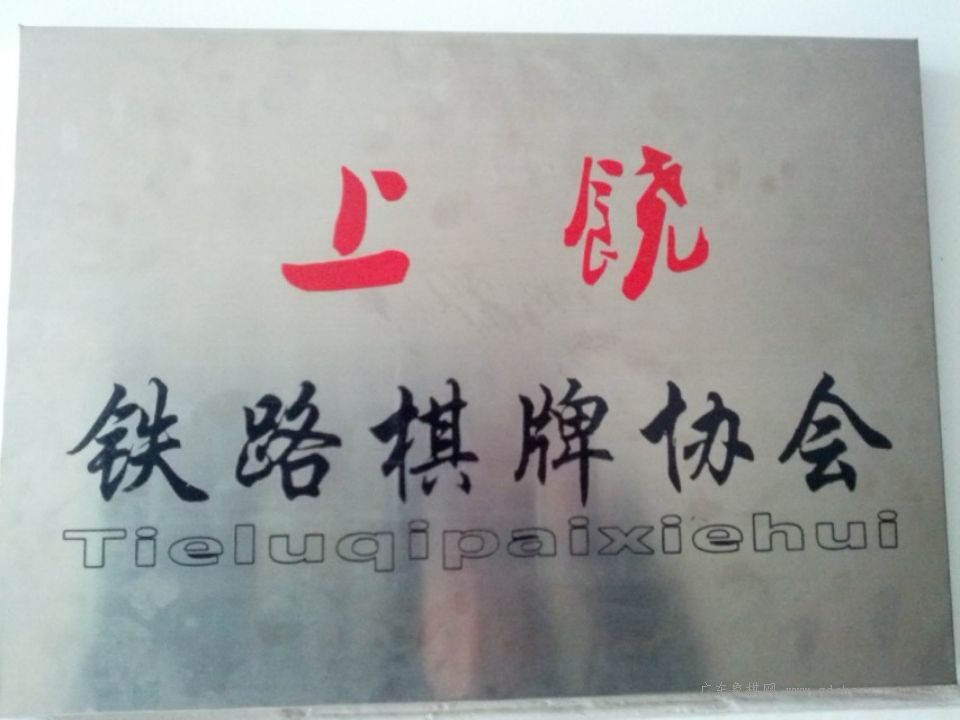 上饶
铁路棋牌协会
Tieluqipaixiehui
广东象棋网